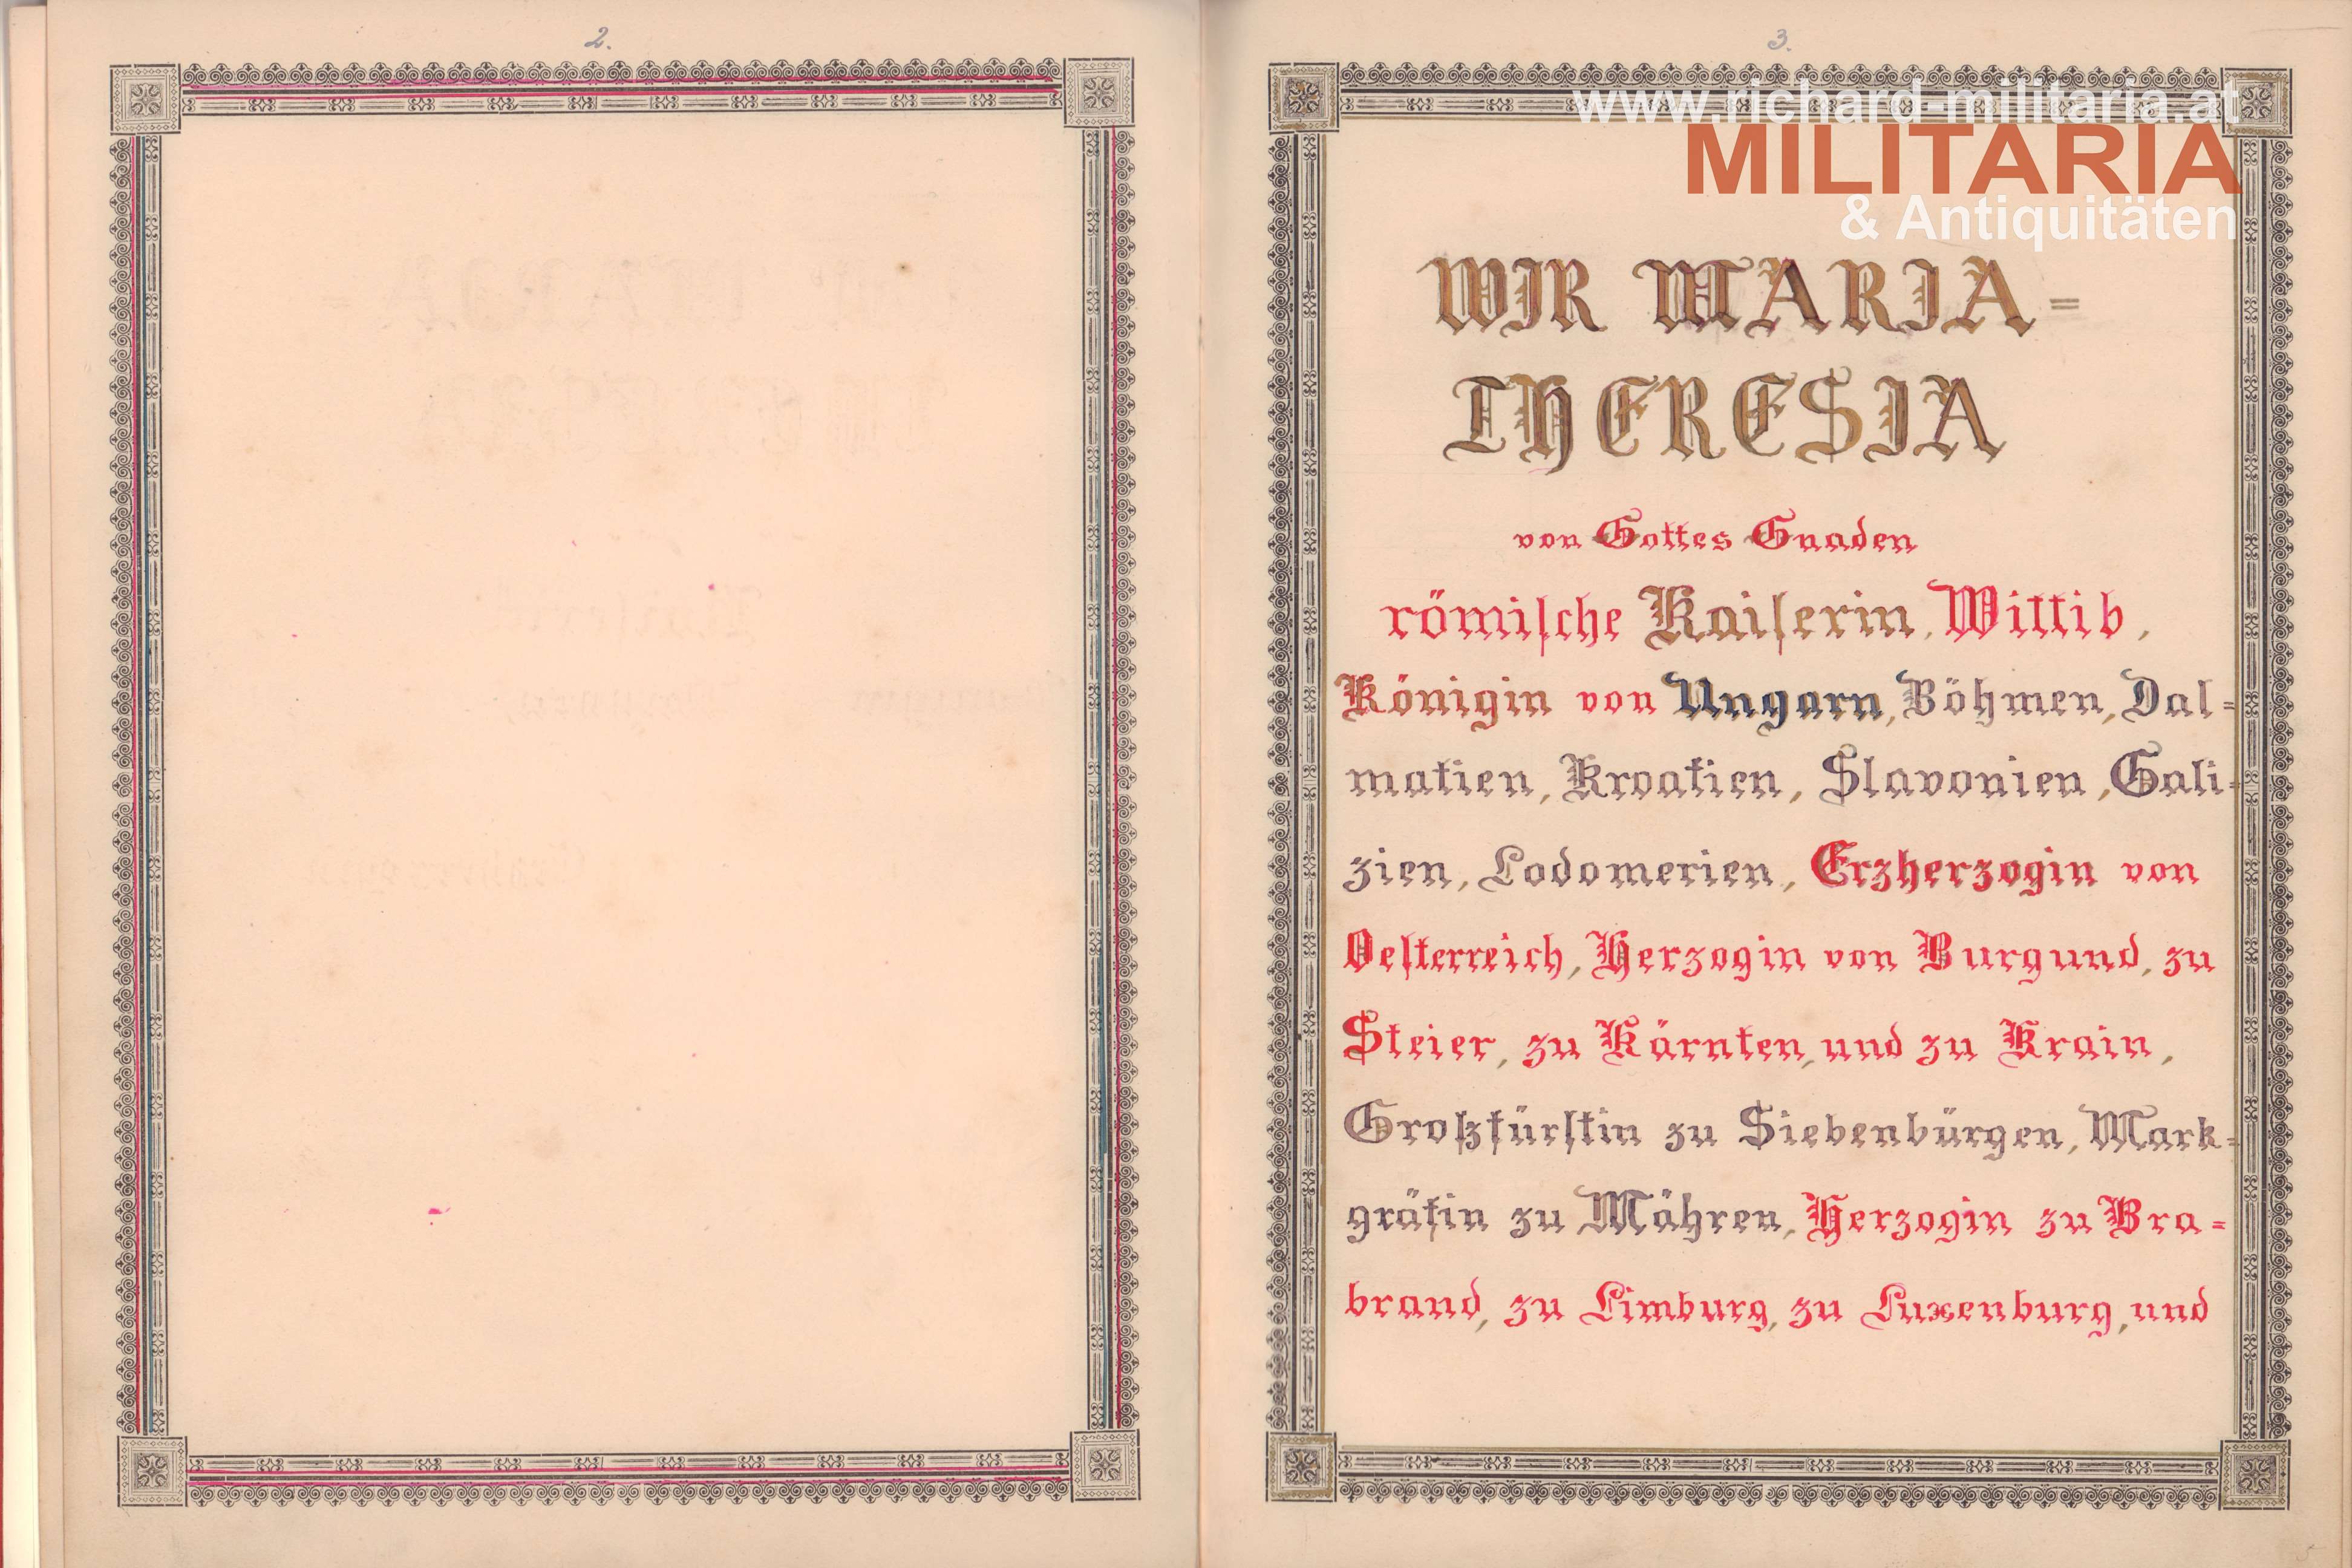 2.
3.
www.richard-militaria.at
MILITARIA
& Antiquitäten
WIR MARIA=
THERESIA
von Gottes Gnaden
römiſche Kaiſerin, Wittib,
Königin von Ungarn, Böhmen, Dal=
matien, Kroatien, Slavonien, Gali=
zien, Lodomerien, Erzherzogin von
Oeſterreich, Herzogin von Burgund, zu
Steier, zu Kärnten, und zu Krain,
Groſzfürſtin zu Siebenbürgen, Mark=
gräfin zu Mähren, Herzogin zu Bra=
brand, zu Limburg, zu Luxenburg, und